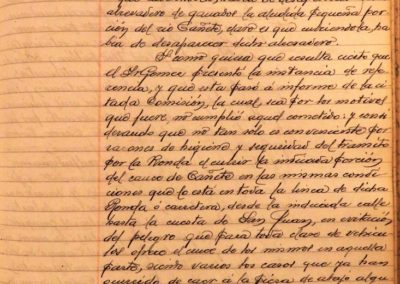 abrevadero de ganados la aludida pequeña por-
ción del rio Cañete, claro es que cubriendola, ha-
bia de desaparecer dicho abrevadero.
Y como quiera que resulta cierto que
el Sr Gomez presentó la instancia de refe-
rencia, y que esta pasó á informe de la ci-
tada Comisión, la cual sea por los motivos
que fuere, no cumplió aquel cometido; y consi-
derando que no tan solo es conveniente por
razones de higiene y seguridad del transito
por la Ronda el cubrir la indicada porción
del cauce de Cañete en las mismas condi-
ciones que lo está en toda la linea de dicha
Ronda ó carretera, desde la indicada calle
hasta la cuesta de San Juan, en evitación
del peligro que para toda clase de vehicu-
los ofrece el cauce de los mismos en aquella
parte, siendo varios los casos que ya han
ocurrido de caer á la pieza de abajo algu-